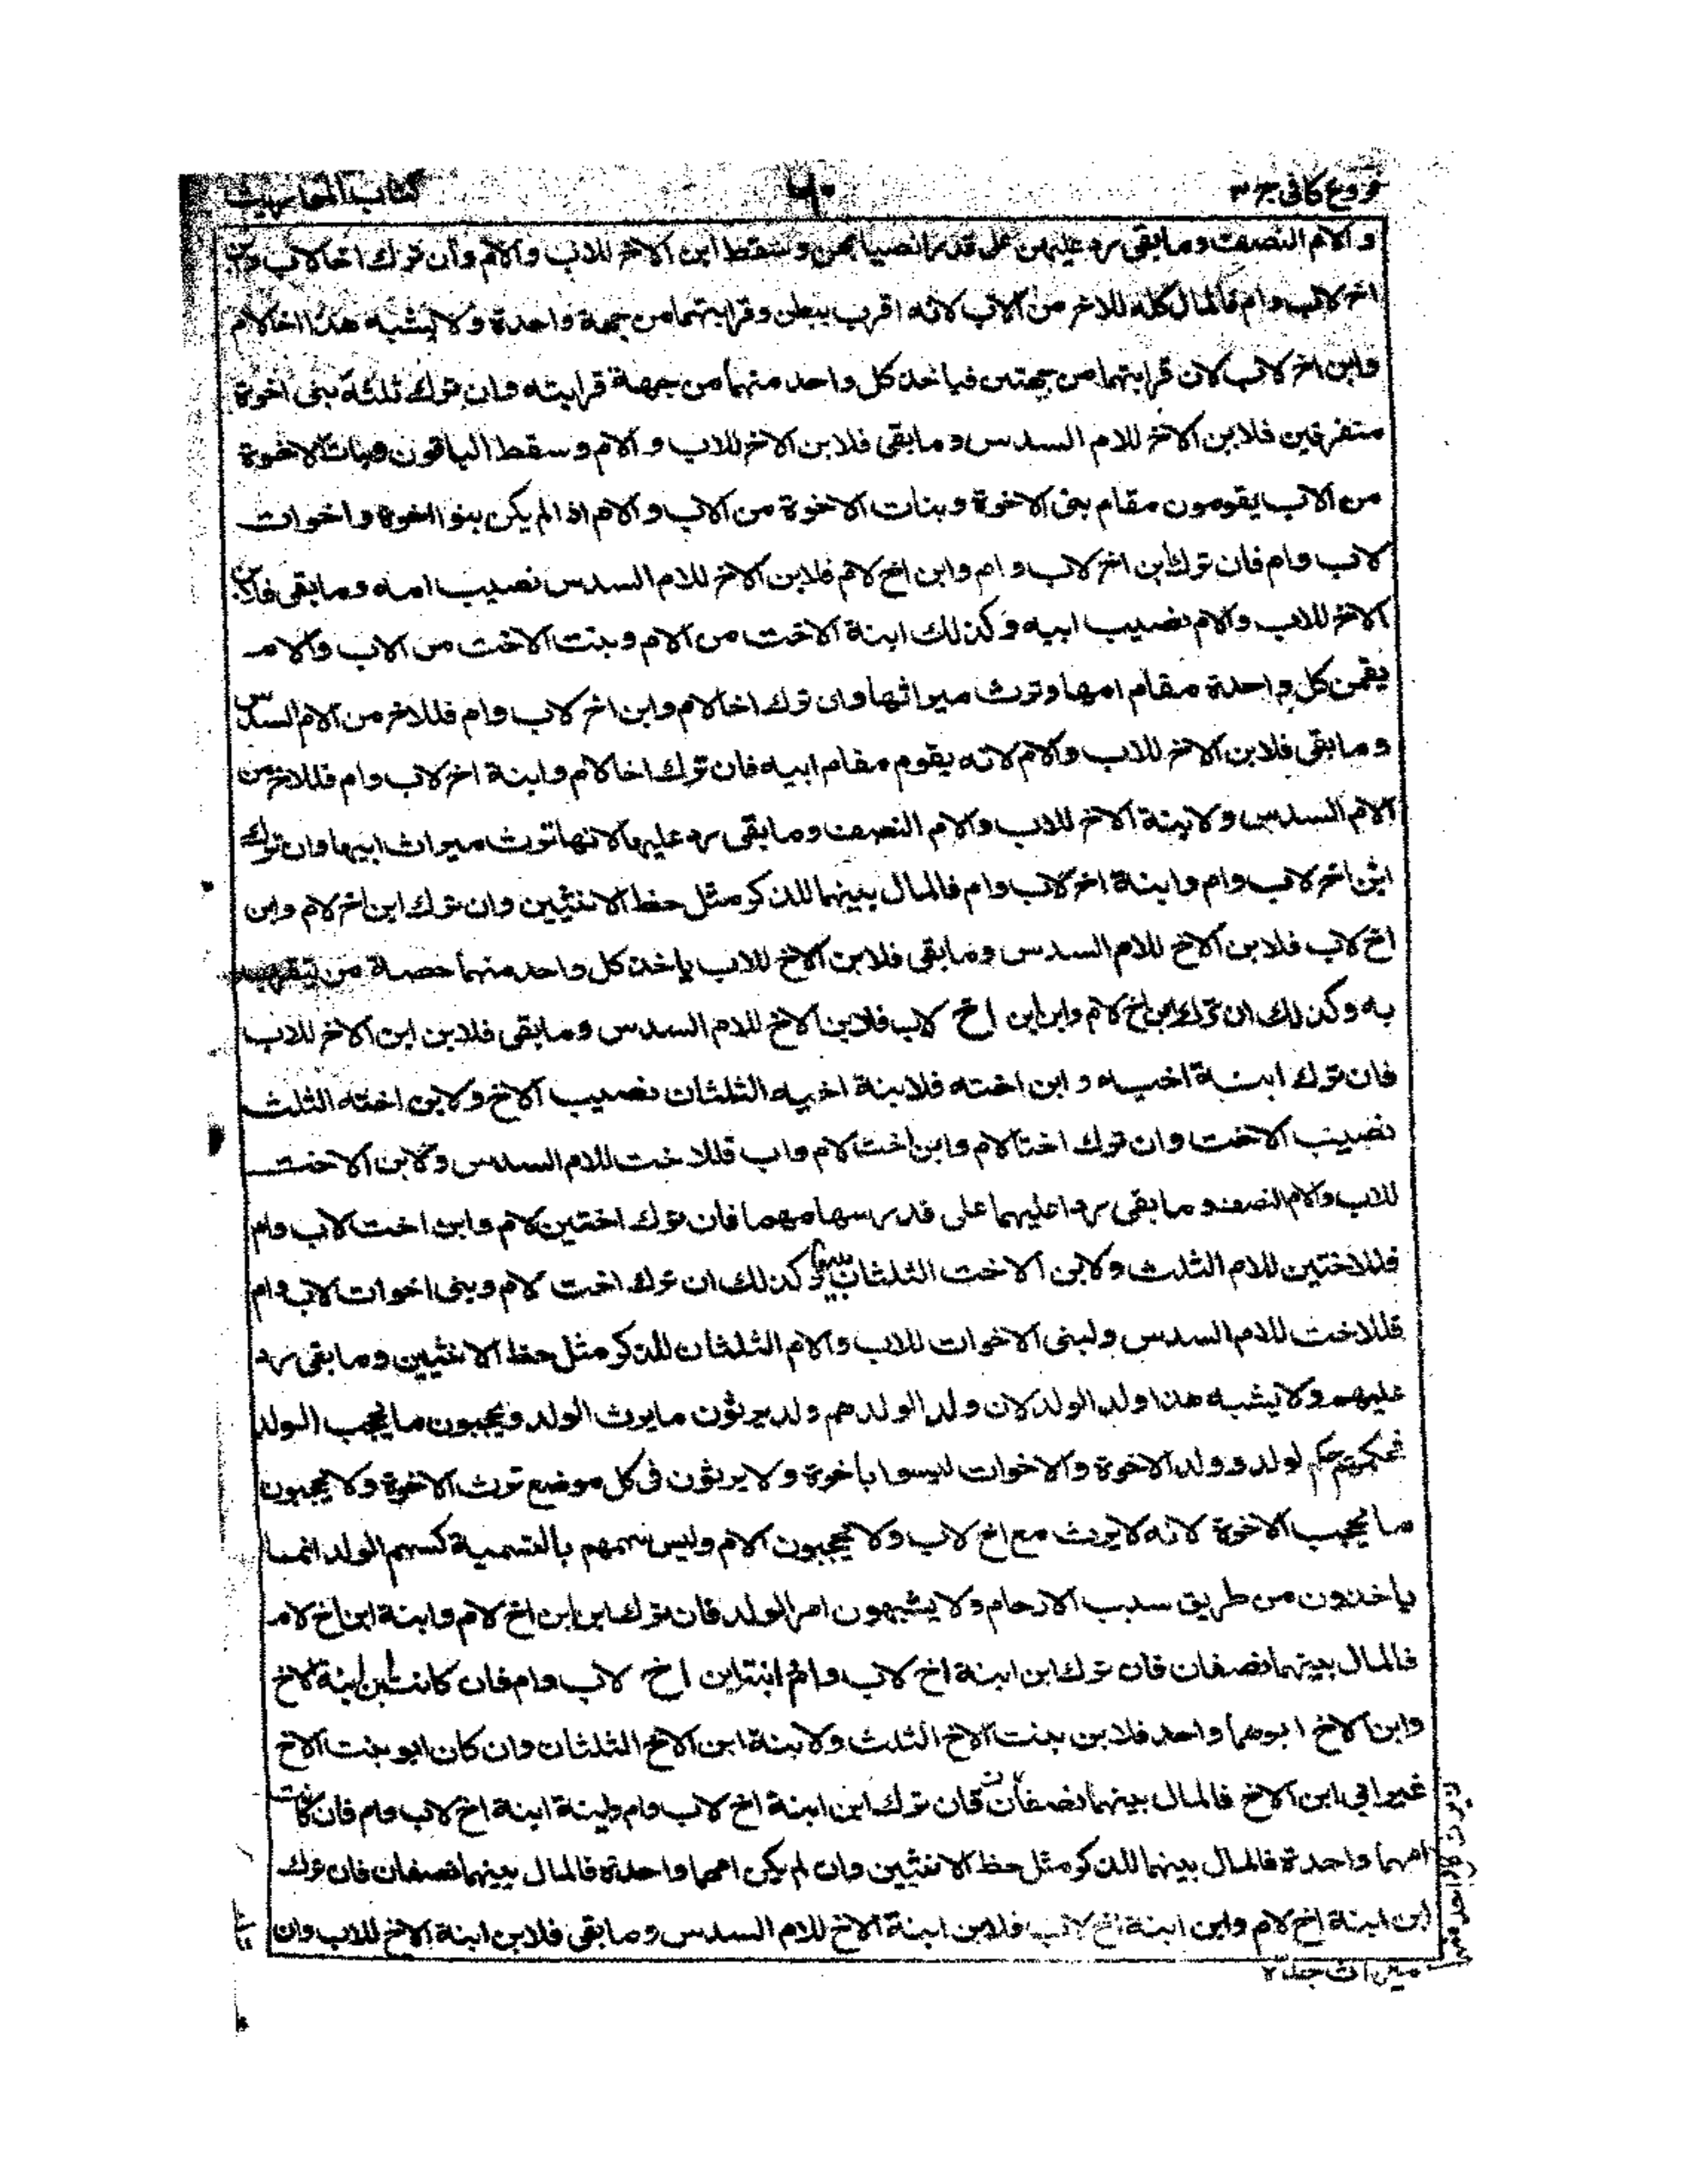 فروع کافی ج ۳
۶۰
کتاب المواریث
والام النصف وما بقی رد علیهن علی قدر انصبائهن وسقط ابن الاخ للاب والام وان ترک اخا لاب وابن
اخ لاب وام فالمال کله للاخ من الاب لانه اقرب ببطن وقرابتهما من جهة واحدة ولا یشبه هذا اخا لام
وابن اخ لاب لان قرابتهما من جهتین فیاخذ کل واحد منهما من جهة قرابته وان ترک ثلثة بنی اخوة
متفرقین فلابن الاخ للام السدس وما بقی فلابن الاخ للاب والام وسقط الباقون وبنات الاخوة
من الاب یقومون مقام بنی الاخوة وبنات الاخوة من الاب والام اذا لم یکن بنو اخوة واخوات
لاب وام فان ترک ابن اخ لاب وام وابن اخ لام فلابن الاخ للام السدس نصیب امه وما بقی فلابن
الاخ للاب والام نصیب ابیه وکذلک ابنة الاخت من الام وبنت الاخت من الاب والام
یقمن کل واحدة مقام امها وترث میراثها وان ترک اخا لام وابن اخ لاب وام فللاخ من الام السدس
وما بقی فلابن الاخ للاب والام لانه یقوم مقام ابیه فان ترک اخا لام وابنة اخ لاب وام فللاخ من
الام السدس ولابنة الاخ للاب والام النصف وما بقی رد علیها لانها ترث میراث ابیها وان ترک
ابن اخ لاب وام وابنة اخ لاب وام فالمال بینهما للذکر مثل حظ الانثیین وان ترک ابن اخ لام وابن
اخ لاب فلابن الاخ للام السدس وما بقی فلابن الاخ للاب یاخذ کل واحد منهما حصة من یتقرب
به وکذلک ان ترک ابن اخ لام وابن ابن اخ لاب فلابن الاخ للام السدس وما بقی فلابن ابن الاخ للاب
فان ترک ابنة اخیه و ابن اخته فلابنة اخیه الثلثان نصیب الاخ ولابن اخته الثلث
نصیب الاخت وان ترک اختا لام وابن اخت لام واب فللاخت للام السدس ولابن الاخت
للاب والام النصف وما بقی رد علیهما علی قدر سهامهما فان ترک اختین لام وابن اخت لاب وام
فللاختین للام الثلث ولابن الاخت الثلثان وکذلک ان ترک اخت لام وبنی اخوات لاب وام
فللاخت للام السدس ولبنی الاخوات للاب والام الثلثان للذکر مثل حظ الانثیین وما بقی رد
علیهم ولا یشبه هذا ولد الولد لان ولد الولد هم ولد یرثون ما یرث الولد ویحجبون ما یحجب الولد
فحکمهم حکم لولد وولد الاخوة والاخوات لیسوا باخوة ولا یرثون فی کل موضع ترث الاخوة ولا یحجبون
ما یحجب الاخوة لانه لا یرث مع اخ لاب ولا یحجبون الام ولیس سهمهم بالتسمیة کسهم الولد انما
یاخذون من طریق سبب الارحام ولا یشبهون امر الولد فان ترک ابن ابن اخ لام وابنة ابن اخ لام
فالمال بینهما نصفان فان ترک ابن ابنة اخ لاب وام ابنة ابن اخ لاب وام فان کانت ابن ابنة الاخ
وابن الاخ ابوهما واحد فلابن بنت الاخ الثلث ولابنة ابن الاخ الثلثان وان کان ابو بنت الاخ
غیر ابی ابن الاخ فالمال بینهما نصفان فان ترک ابن ابنة اخ لاب وام وابنة ابنة اخ لاب وام فان کانت
امهما واحدة فالمال بینهما للذکر مثل حظ الانثیین وان لم یکن امهما واحدة فالمال بینهما نصفان فان ترک
ابن ابنة اخ لام وابن ابنة اخ لاب فلابن ابنة الاخ للام السدس وما بقی فلابن ابنة الاخ للاب وان
میراث جد